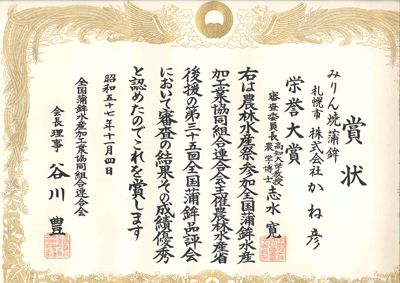 賞状
みりん焼蒲鉾
札幌市 株式会社 かね彦
栄誉大賞
審査委員長 高知大学教授 農学博士 志水寛
右は農林水産祭参加全国蒲鉾水産
加工業協同組合連合会主催農林水産省
後援の第三十五回全国蒲鉾品評会
において審査の結果その成績優秀
と認めたのでこれを賞します
昭和五十七年十一月四日
全国蒲鉾水産加工業協同組合連合会
会長理事 谷川豊